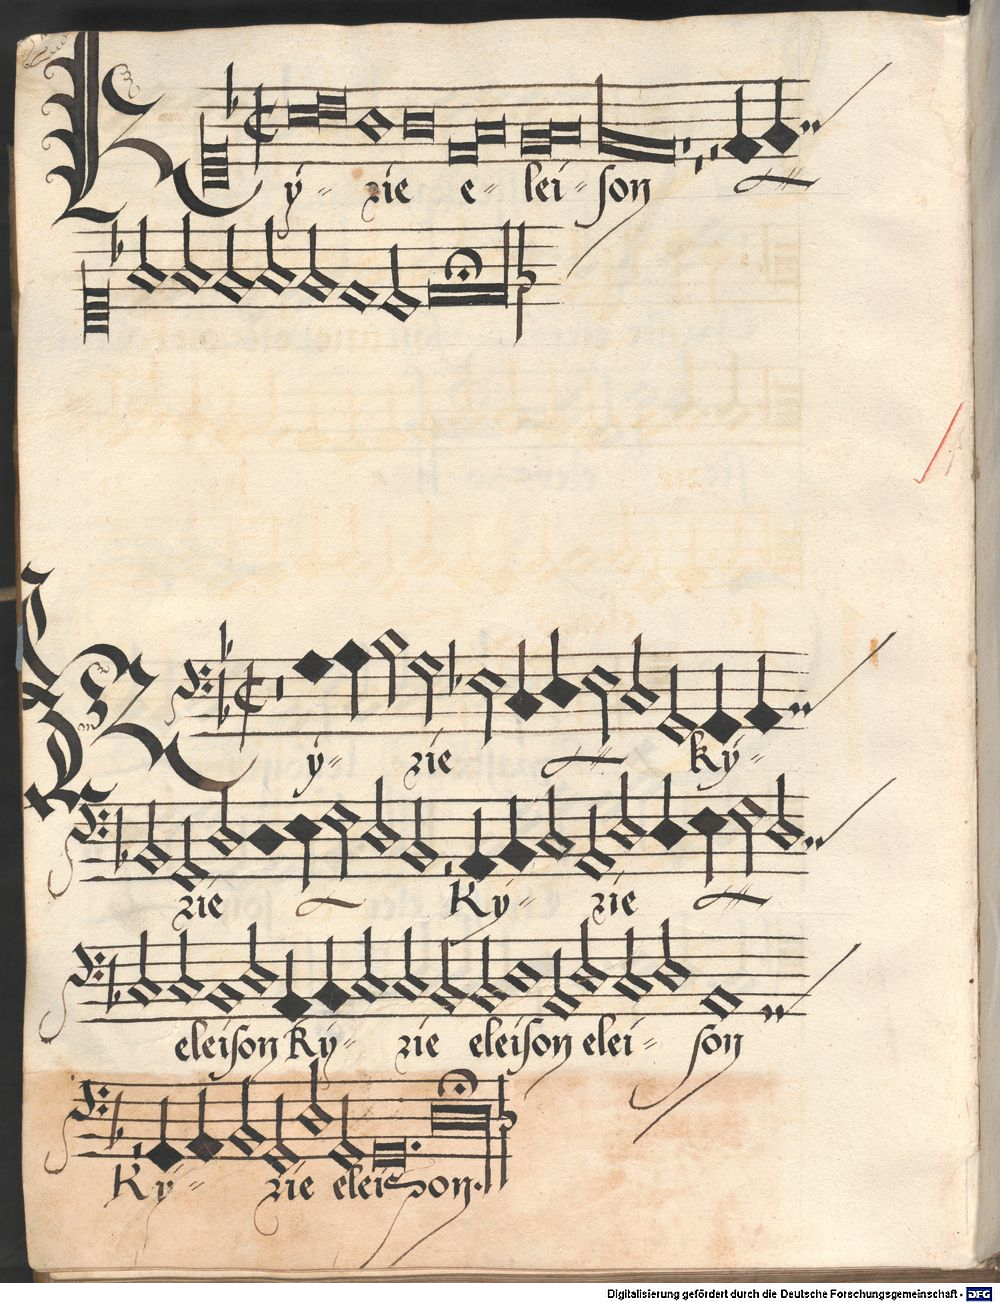 Ky= zie e= lei= son
Ky= zie Ky=
zie Ky= zie
eleison Ky= zie eleison elei= son
Ky= zie eleison.
Digitalisierung gefördert durch die Deutsche Forschungsgemeinschaft - DFG